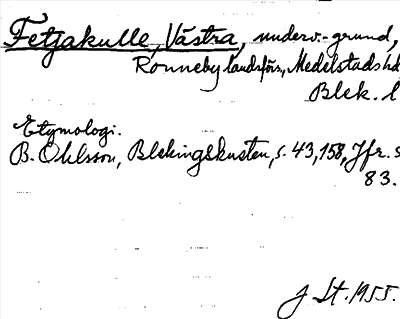 Fetjakulle, Västra, underv.-grund,
Ronneby landsförs, Medelstads hd
Blek. l
Etymologi.
B. Ohlsson, Blekingskusten, s. 43, 158, Jfr. s
83.
J St. 1955.